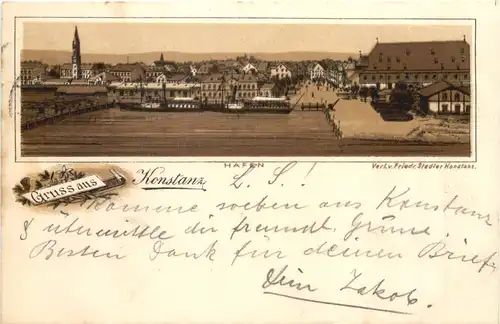 HAFEN
Verl. v. Friedr. Stadler Konstanz.
Gruss aus Konstanz
L. S.!
Komme soeben aus Konstanz
& übermittle dir freundl. Grüsse
Besten Dank für deinen Brief.
Dein Jakob.